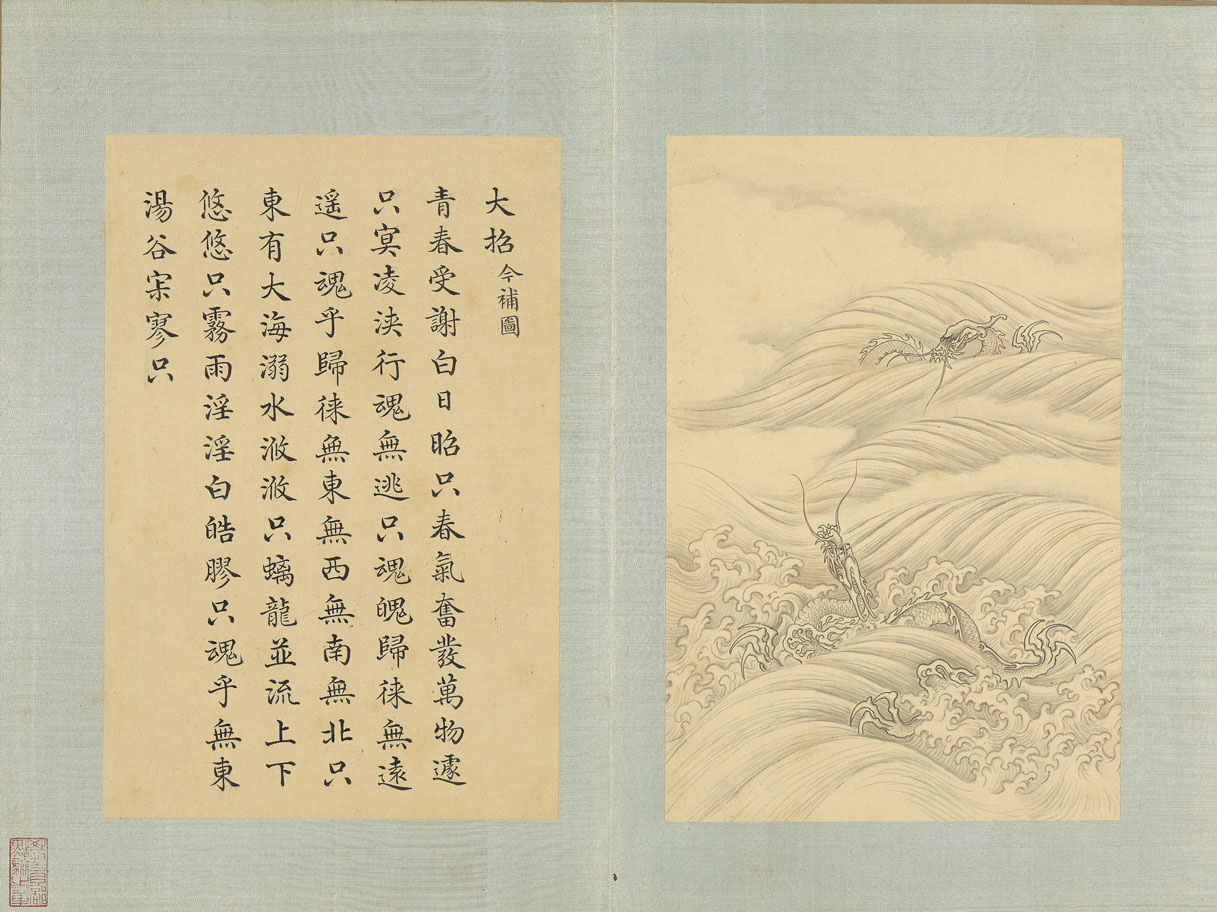 大招今補圖
青春受謝白日昭只春氣奮發萬物遽
只冥凌浹行魂無逃只魂魄歸徠無遠
遥只魂乎歸徠無東無西無南無北只
東有大海溺水浟浟只螭龍並流上下
悠悠只霧雨淫淫白皓膠只魂乎無東
湯谷宗寥只